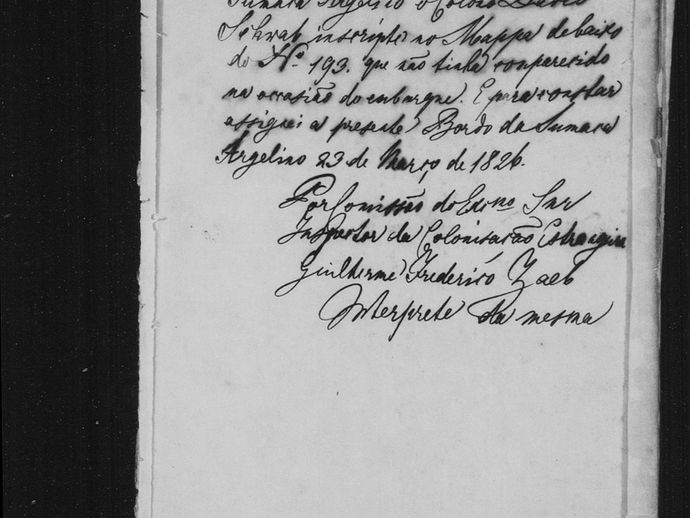 Sumaca Argelino o Colono David
Schwab inscripto no Mappa debaixo
do Nº 193. que não tinha comparecido
na occasião do embarque. E para constar
assignei a presente Bordo da Sumaca
Argelino 23 de Março de 1826.
Por Comissão do Exmo Snr
Inspector da Colonisação Estrangeira
Guilherme Frederico
Interprete da mesma